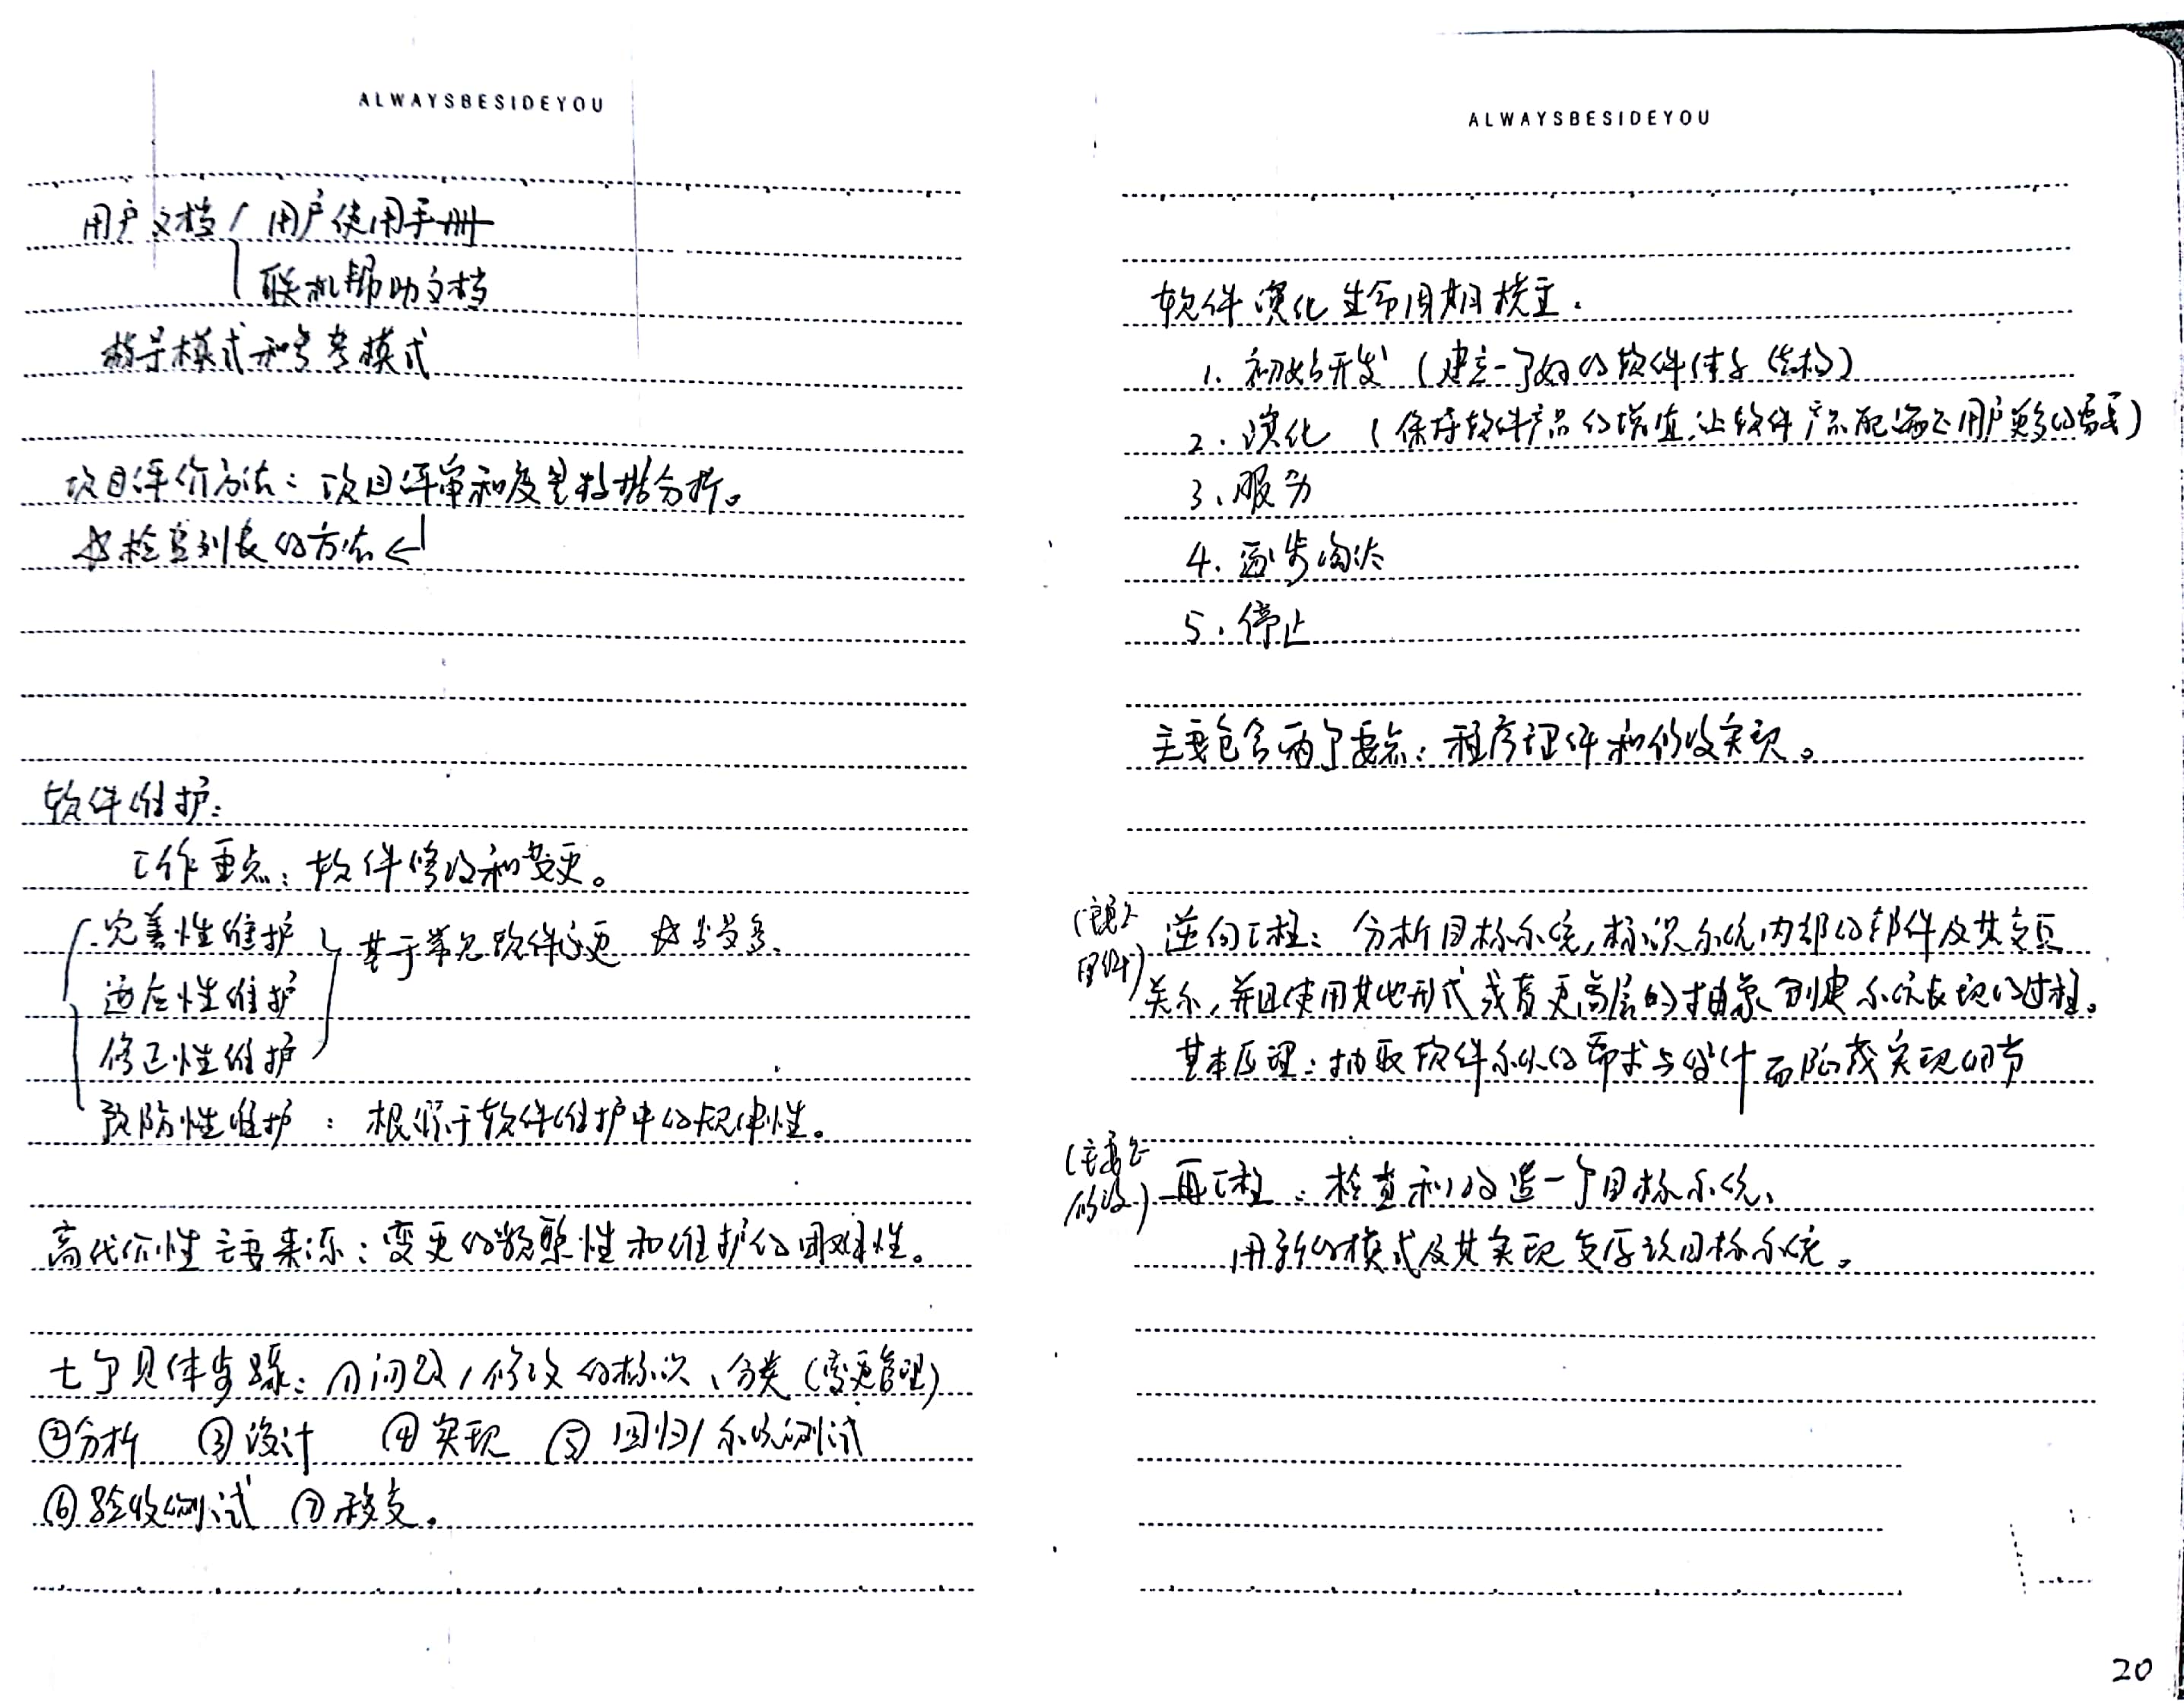 ALWAYSBESIDEYOU
用户文档 用户使用手册
联机帮助文档
指导模式和参考模式
项目评价方法：项目评审和度量数据分析。
☆检查列表的方法←
软件维护：
工作重点：软件修改和变更。
完善性维护
基于常见软件变更 ☆占最多.
适应性维护
修正性维护
预防性维护：根源于软件维护中的规律性。
高代价性主要来源：变更的频繁性和维护的困难性。
七个具体步骤：①问题/修改的标识、分类（变更管理）
②分析 ③设计 ④实现 ⑤回归/系统测试
⑥验收测试 ⑦移交。
ALWAYSBESIDEYOU
软件演化生命周期模型.
1. 初始开发（建立一个好的软件体系结构）
2. 演化（保持软件产品的增值,让软件产品配满足用户更多的需要）
3、服务
4. 逐步淘汰
5. 停止
主要包含两个要点：程序理解和修改实现。
理解）
逆向工程：分析目标系统,标识系统内部的部件及其交互
关系,并且使用其他形式或者更高层的抽象创建系统表现的过程。
基本原理：抽取软件系统的需求与设计而隐藏实现细节
（主要是
修改）
再工程：检查和改造一个目标系统、
用新的模式及其实现复原该目标系统。
20